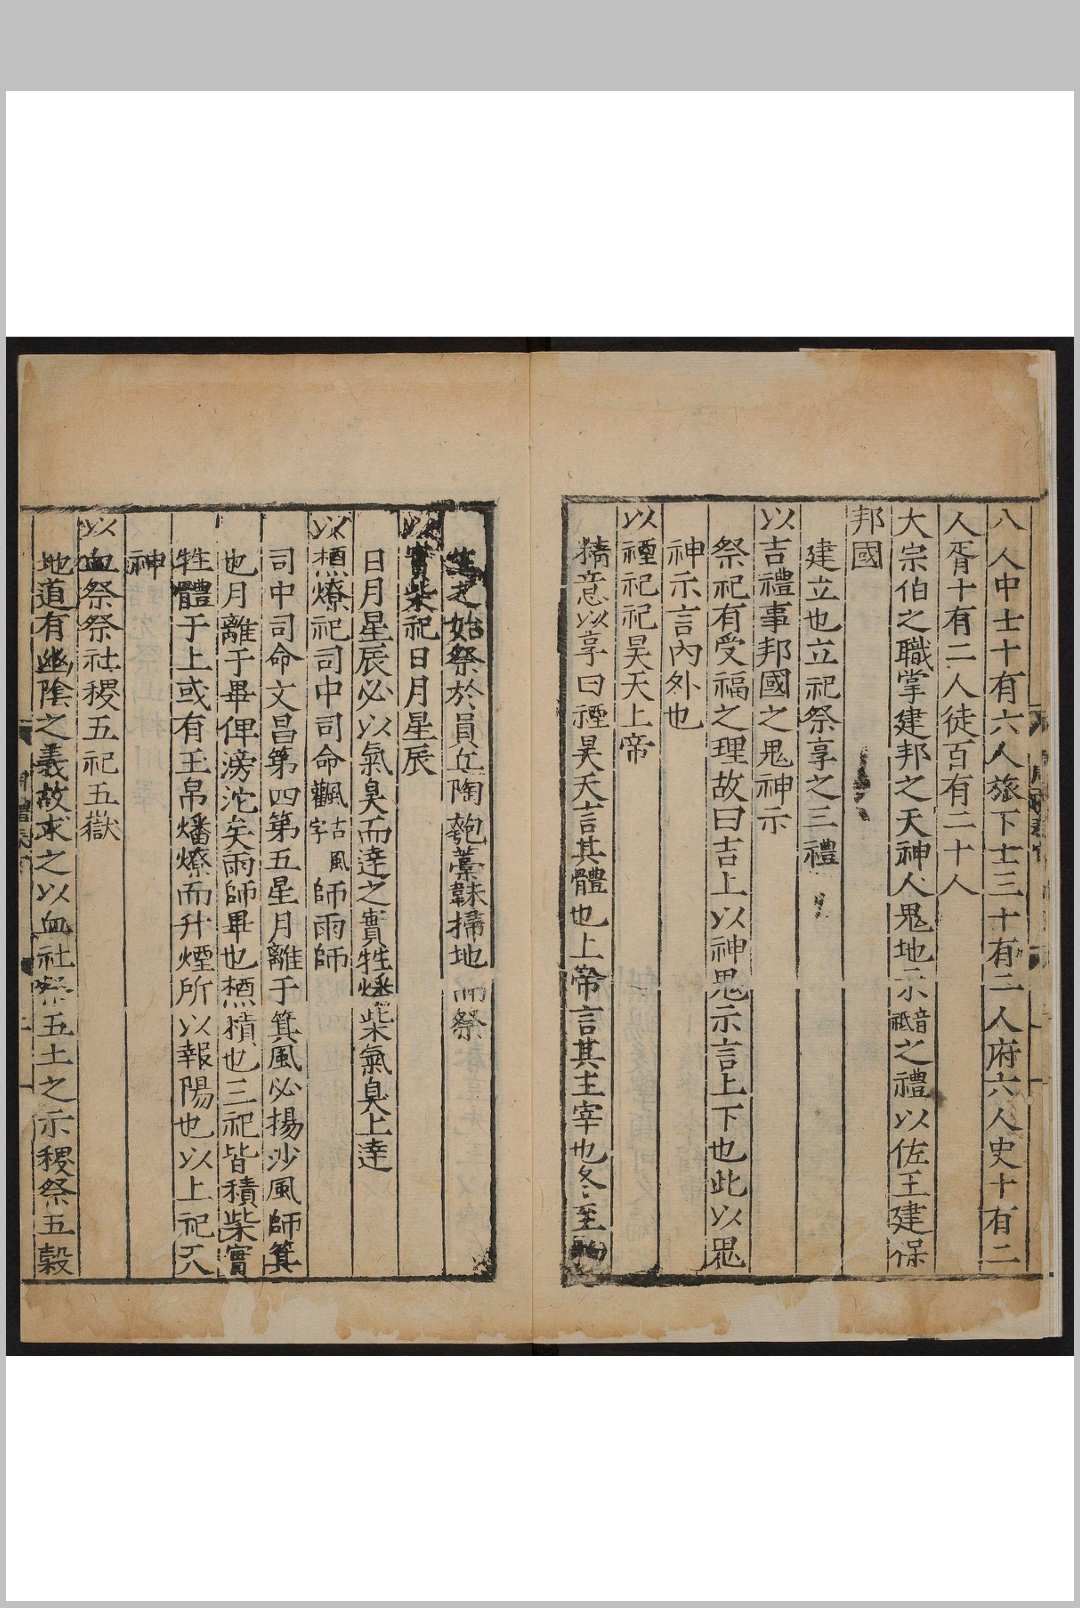 八人中士十有六人旅下士三十有二人府六人史十有二
人胥十有二人徒百有二十人
大宗伯之職掌建邦之天神人鬼地示音祗之禮以佐王建保
邦國
建立也立祀祭享之三禮
以吉禮事邦國之鬼神示
祭祀有受福之理故曰吉上以神鬼示言上下也此以鬼
神示言內外也
以禋祀祀昊天上帝
精意以享曰禋昊天言其體也上帝言其主宰也冬至
生之始祭於員丘陶匏藁韎掃地而祭
以實柴祀日月星辰
日月星辰必以氣臭而達之實牲燔柴氣臭上達
以槱燎祀司中司命飌古風字師雨師
司中司命文昌第四第五星月離于箕風必揚沙風師箕
也月離于畢俾滂沱矣雨師畢也槱積也三祀皆積柴實
牲體于上或有王帛燔燎而升煙所以報陽也以上祀天
神
以血祭祭社稷五祀五嶽
地道有幽陰之義故求之以血社祭五土之示稷祭五穀